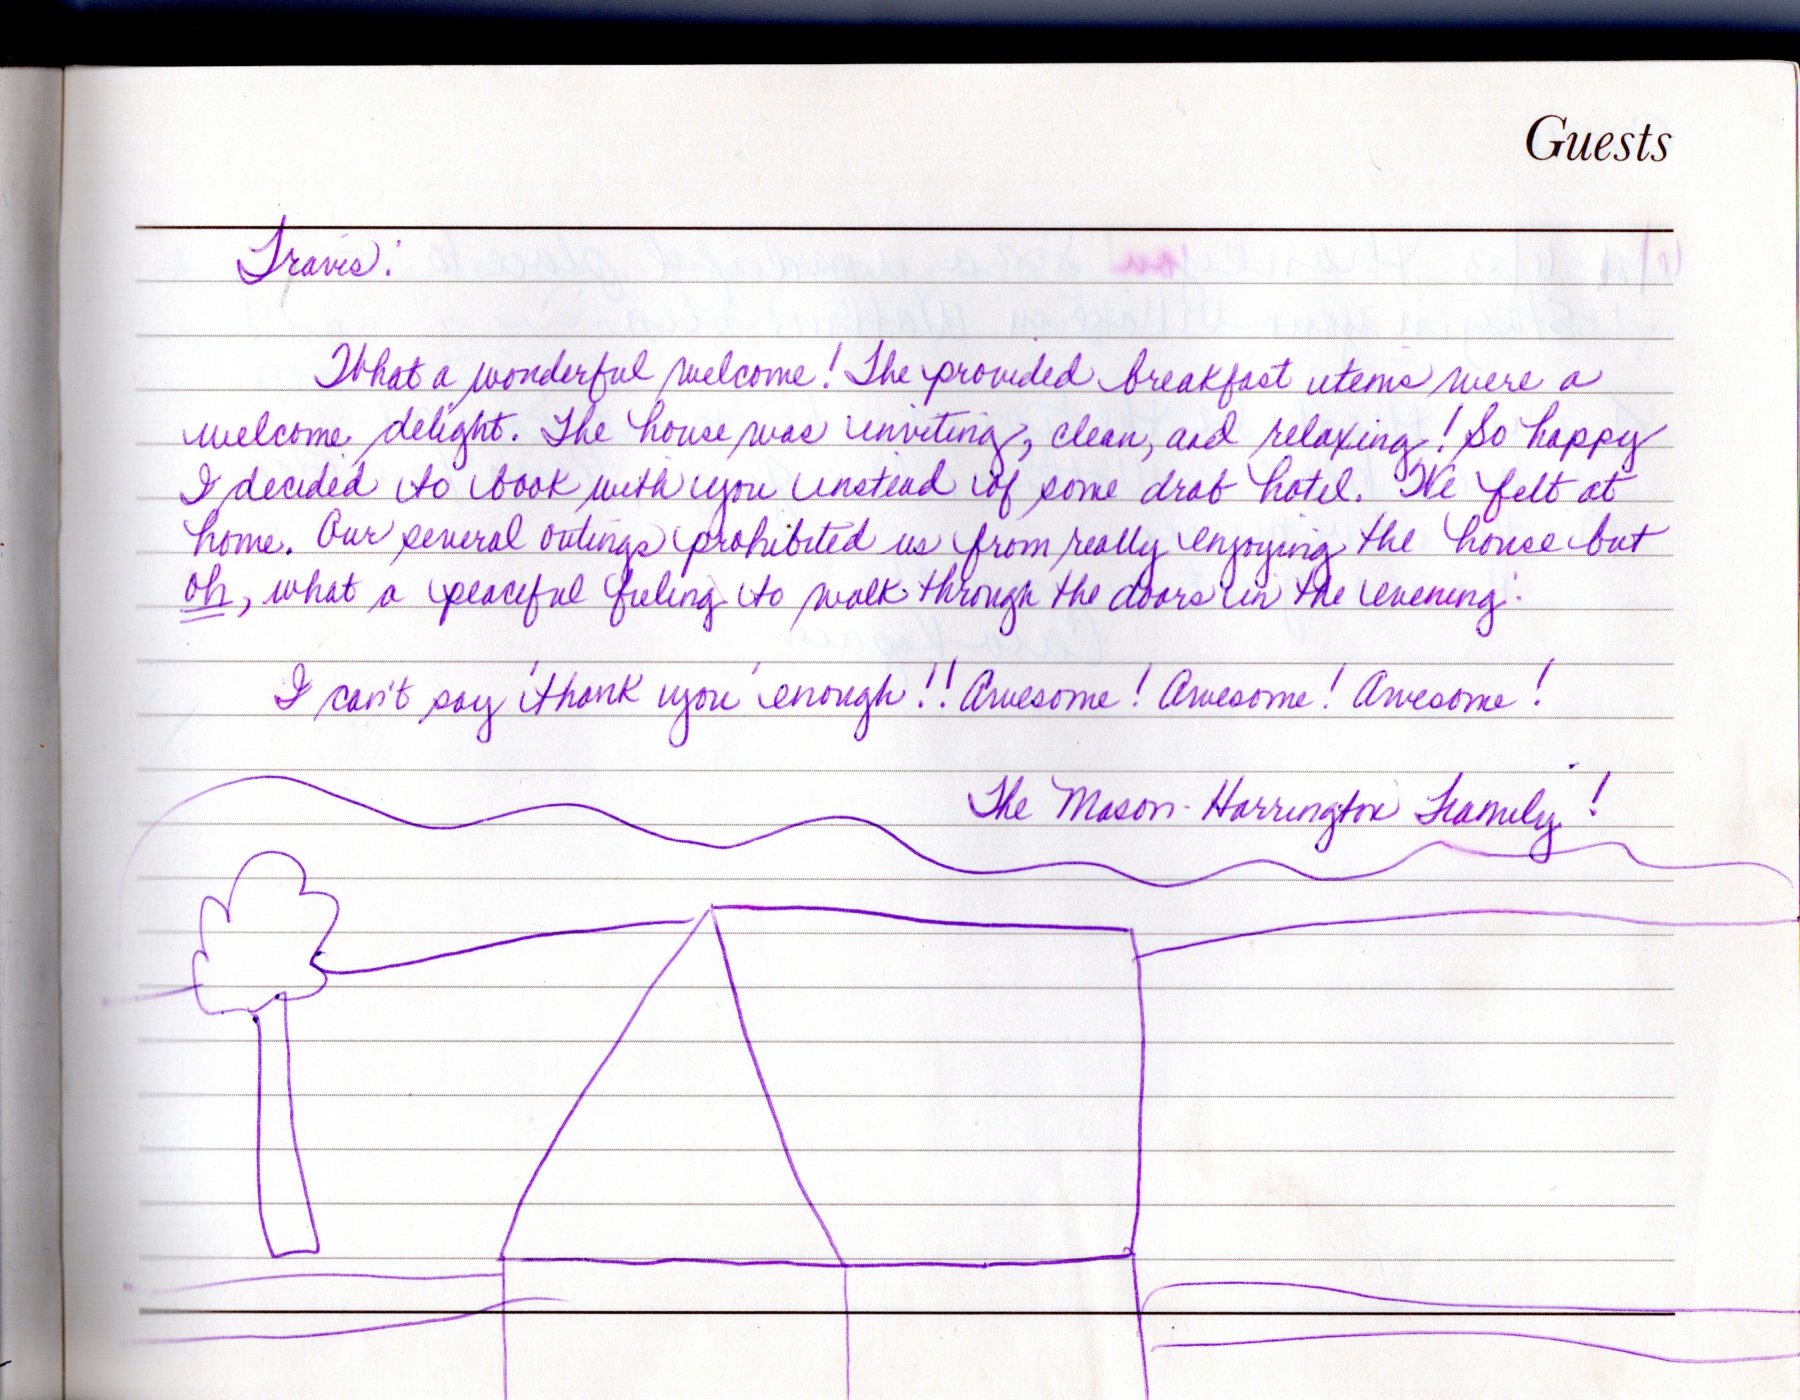 Guests
Travis:
What a wonderful welcome! The provided breakfast items were a
welcome delight. The house was inviting, clean, and relaxing! So happy
I decided to book with you instead of some drab hotel. We felt at
home. Our several outings prohibited us from really enjoying the house but
oh, what a peaceful feeling to walk through the doors in the evening!
I can't say 'thank you' enough!! Awesome! Awesome! Awesome!
The Mason-Harrington Family!